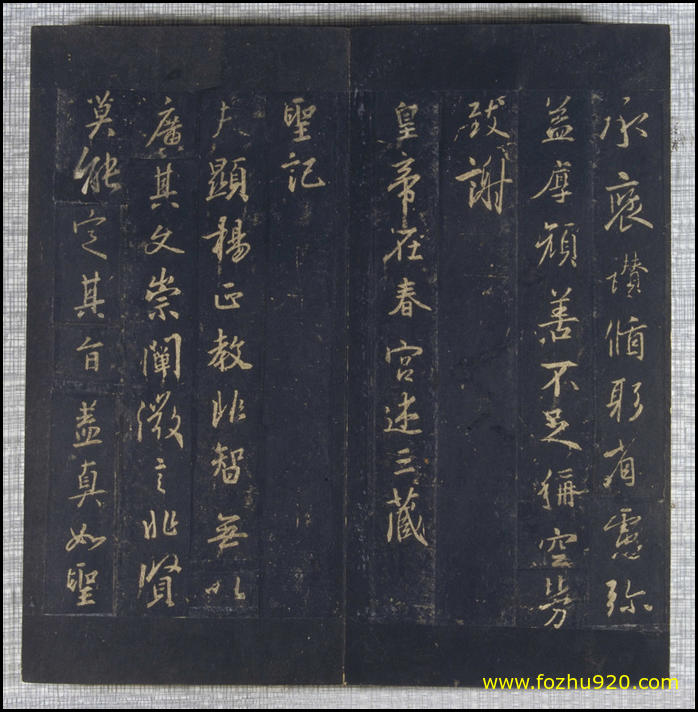 承褒讃循躬省慮弥
益厚顔善不足稱空勞
致謝
皇帝在春宮述三藏
聖記
夫顯揚正教非智無以
廣其文崇闡微言非賢
莫能定其旨蓋真如聖
www.fozhu920.com